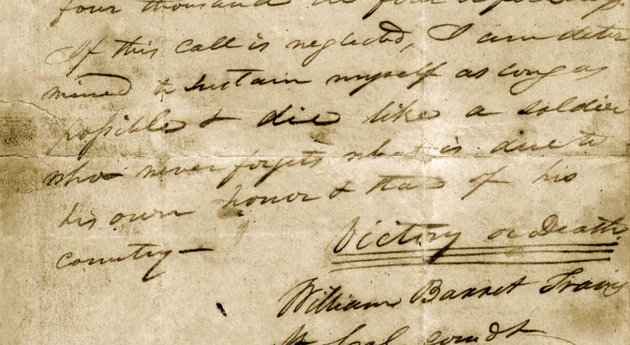 four thousand in four or five days.
If this call is neglected, I am deter
mined to sustain myself as long as
possible & die like a soldier
who never forgets what is due to
his own honor & that of his
country —
Victory or Death
William Barret Travis
Lt. Col. comdt